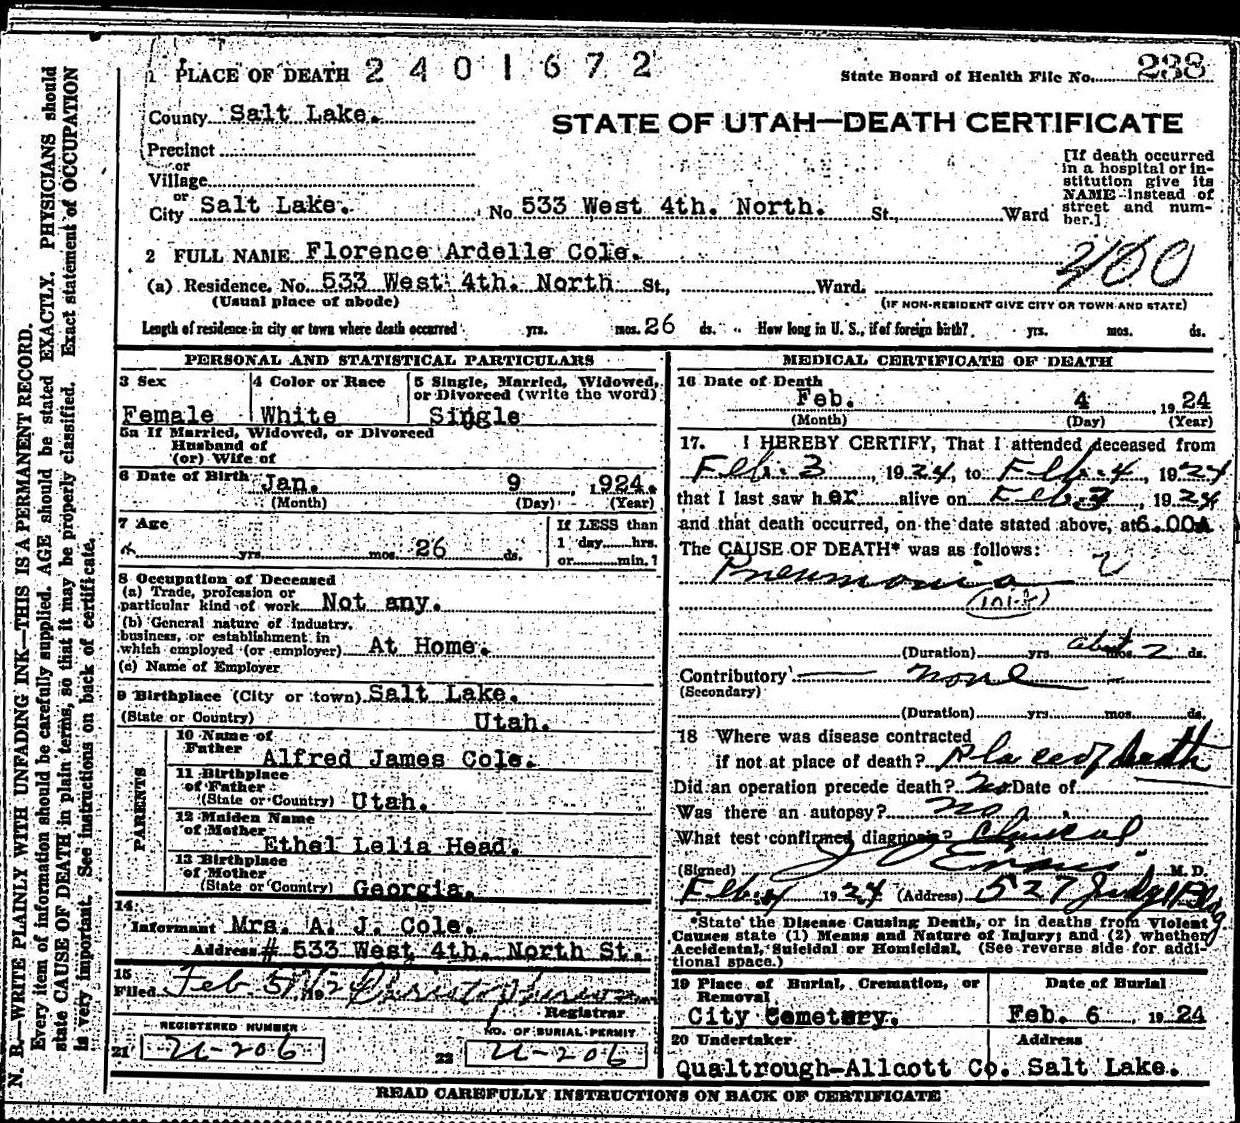 1 PLACE OF DEATH 2401672
State Board of Health File No. 238
County Salt Lake.
STATE OF UTAH—DEATH CERTIFICATE
Precinct
or
Village
or
City Salt Lake. No. 533 West 4th. North. St., Ward
[If death occurred
in a hospital or in-
stitution give its
NAME instead of
street and num-
ber.]
2 FULL NAME Florence Ardelle Cole.
(a) Residence, No. 533 West 4th. North St., Ward.
(Usual place of abode)
(IF NON-RESIDENT GIVE CITY OR TOWN AND STATE)
Length of residence in city or town where death occurred yrs. mos. 26 ds. How long in U. S., if of foreign birth? yrs. mos. ds.
PERSONAL AND STATISTICAL PARTICULARS
3 Sex
Female
4 Color or Race
White
5 Single, Married, Widowed,
or Divorced (write the word)
Single
5a If Married, Widowed, or Divorced
Husband of
(or) Wife of
6 Date of Birth Jan. 9 1924.
(Month) (Day) (Year)
7 Age
yrs. mos. 26 ds.
If LESS than
1 day hrs.
or min.?
8 Occupation of Deceased
(a) Trade, profession or
particular kind of work Not any.
(b) General nature of industry,
business, or establishment in
which employed (or employer) At Home.
(c) Name of Employer
9 Birthplace (City or town) Salt Lake.
(State or Country) Utah.
PARENTS
10 Name of
Father Alfred James Cole.
11 Birthplace
of Father
(State or Country) Utah.
12 Maiden Name
of Mother Ethel Lelia Head.
13 Birthplace
of Mother
(State or Country) Georgia.
14
Informant Mrs. A. J. Cole.
Address # 533 West 4th. North St.
15
Filed Feb. 5 1924
Registrar
REGISTERED NUMBER
21 U-206
NO. OF BURIAL PERMIT
22 U-206
MEDICAL CERTIFICATE OF DEATH
16 Date of Death
Feb. 4 1924
(Month) (Day) (Year)
17. I HEREBY CERTIFY, That I attended deceased from
Feb. 3, 1924, to Feb. 4, 1924
that I last saw her alive on Feb 3, 1924
and that death occurred, on the date stated above, at 6.00A
The CAUSE OF DEATH* was as follows:
Pneumonia
(Duration) yrs. about mos. 2 ds.
Contributory none
(Secondary)
(Duration) yrs. mos. ds.
18 Where was disease contracted
if not at place of death? place of death
Did an operation precede death? No Date of
Was there an autopsy? no
What test confirmed diagnosis? Clinical
(Signed) Evans M. D.
Feb. 4 1924 (Address) 527 Judge Bldg
*State the Disease Causing Death, or in deaths from Violent
Causes state (1) Means and Nature of Injury; and (2) whether
Accidental, Suicidal or Homicidal. (See reverse side for addi-
tional space.)
19 Place of Burial, Cremation, or
Removal
City Cemetery.
Date of Burial
Feb. 6 1924
20 Undertaker
Qualtrough-Allcott Co.
Address
Salt Lake.
READ CAREFULLY INSTRUCTIONS ON BACK OF CERTIFICATE
N. B.—WRITE PLAINLY WITH UNFADING INK—THIS IS A PERMANENT RECORD.
Every item of information should be carefully supplied. AGE should be stated EXACTLY. PHYSICIANS should
state CAUSE OF DEATH in plain terms, so that it may be properly classified. Exact statement of OCCUPATION
is very important. See instructions on back of certificate.